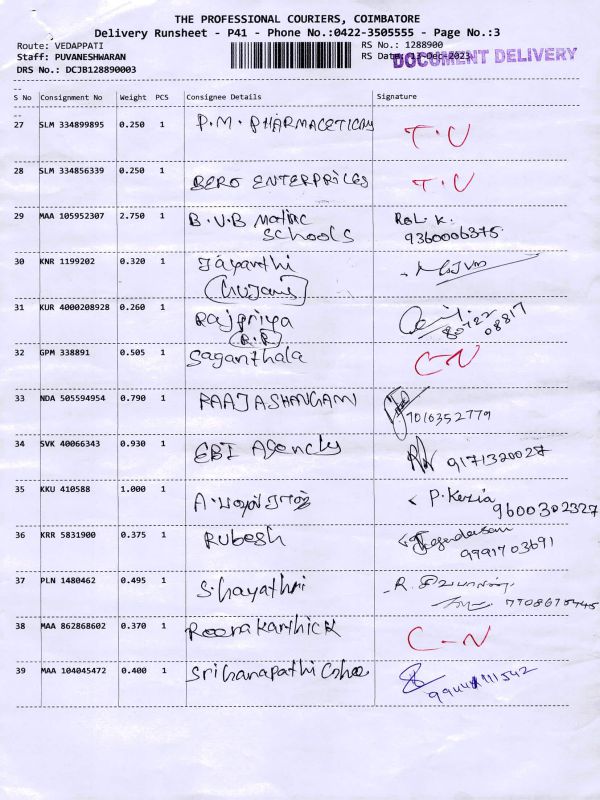 THE PROFESSIONAL COURIERS, COIMBATORE
Delivery Runsheet - P41 - Phone No.:0422-3505555 - Page No.:3
Route: VEDAPPATI
RS No.: 1288900
Staff: PUVANESHWARAN
RS Date: 13-Dec-2023
DOCUMENT DELIVERY
DRS No.: DCJB128890003
--
S No Consignment No Weight PCS Consignee Details Signature
--
27 SLM 334899895 0.250 1 P.M. PHARMACETICAY T.U
28 SLM 334856339 0.250 1 BERO ENTERPRICES T.U
29 MAA 105952307 2.750 1 B.V.B Matric
Schools
9360006375
30 KNR 1199202 0.320 1 Jayanthi
31 KUR 4000208928 0.260 1 Rajpriya
(R.R)
80722
08817
32 GPM 338891 0.505 1 Saganthala C-N
33 NDA 505594954 0.790 1 RAAJASHANGAM 7010352779
34 SVK 40066343 0.930 1 EBI Agency 9171320027
35 KKU 410588 1.000 1 P. Kezia
9600302327
36 KRR 5831900 0.375 1 Rubesh
9991703691
37 PLN 1480462 0.495 1 S.hayathri
38 MAA 862868602 0.370 1 Roora Karthick C-N
39 MAA 104045472 0.400 1